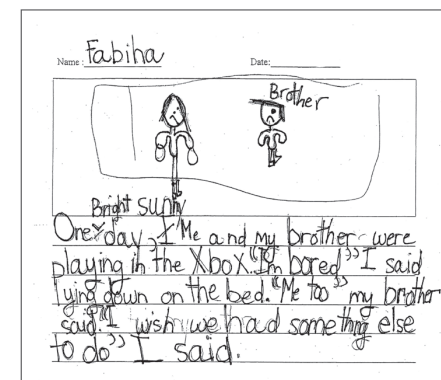 Name: Fabiha Date:
Brother
Bright sunny
One day, I Me and my brother were
playing in the Xbox. "Im bored" I said
lying down on the bed. "Me too" my brother
said. "I wish we had something else
to do" I said.